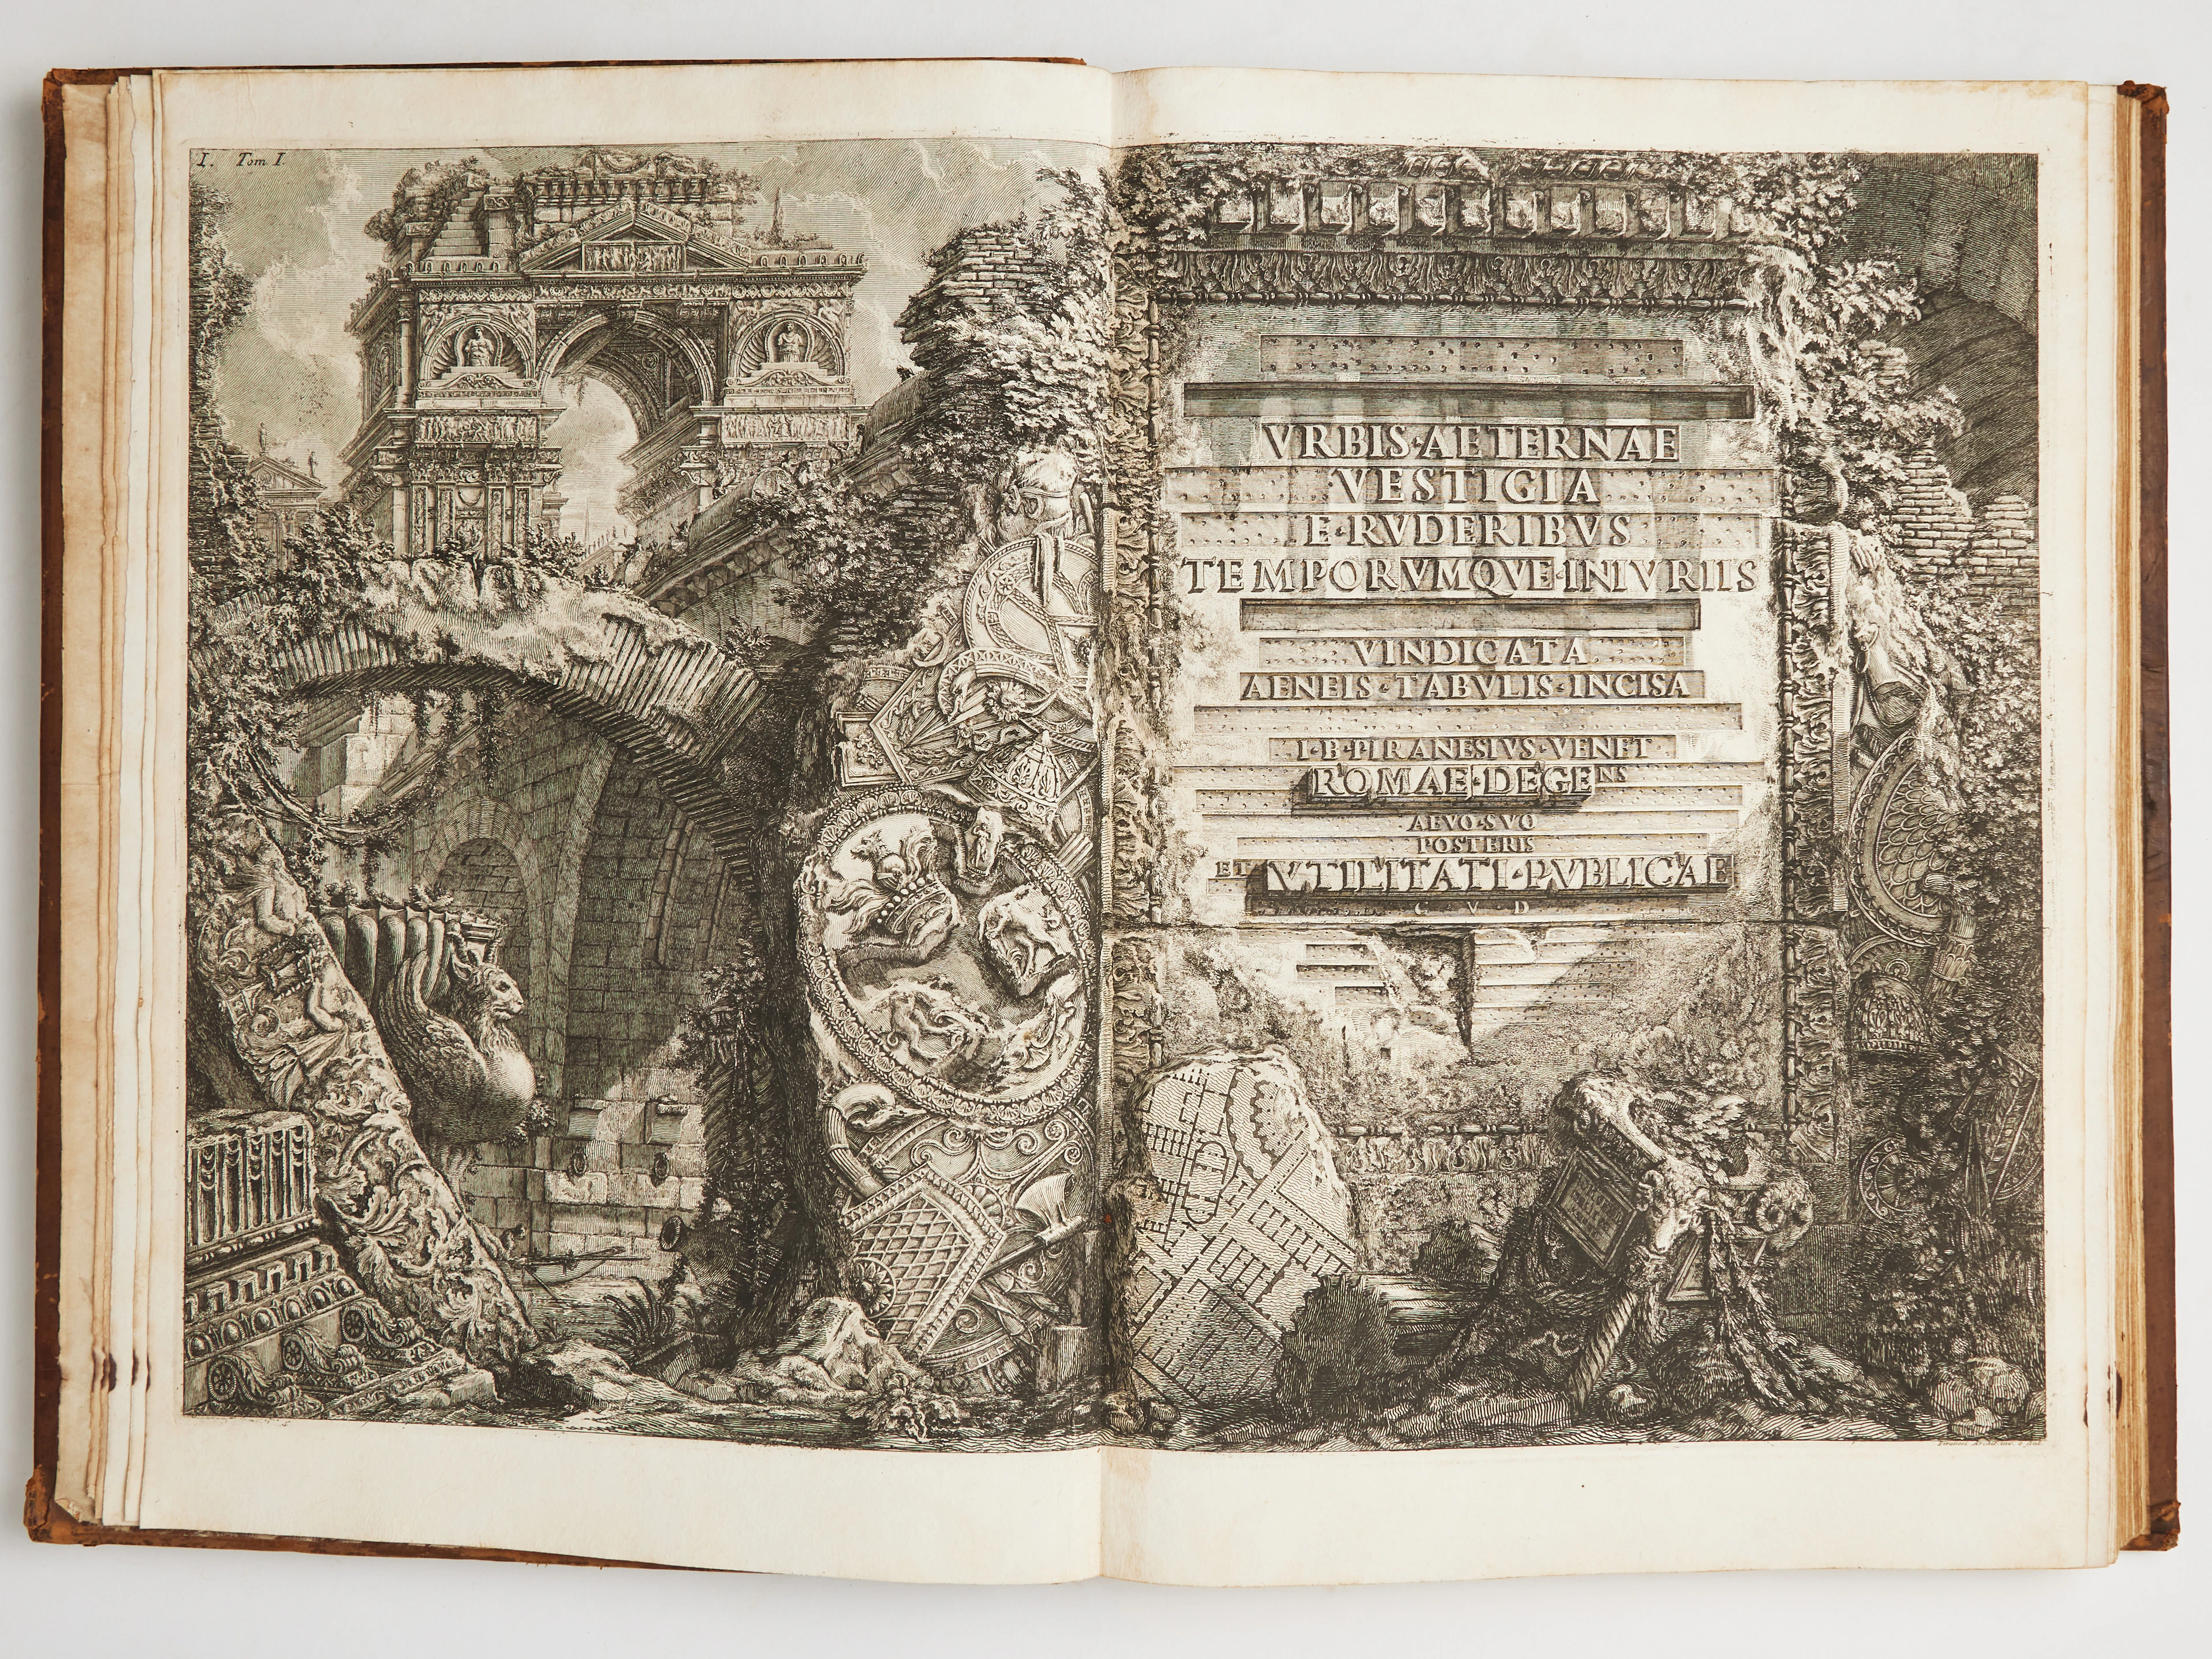 I. Tom I.
VRBIS·AETERNAE
VESTIGIA
E·RVDERIBVS
TEMPORVMQVE·INIVRIIS
VINDICATA
AENEIS·TABVLIS·INCISA
I·B·PIRANESIVS·VENET
ROMAE·DEGENS
AEVO·SVO
POSTERIS
ET VTILITATI·PVBLICAE
C·V·D